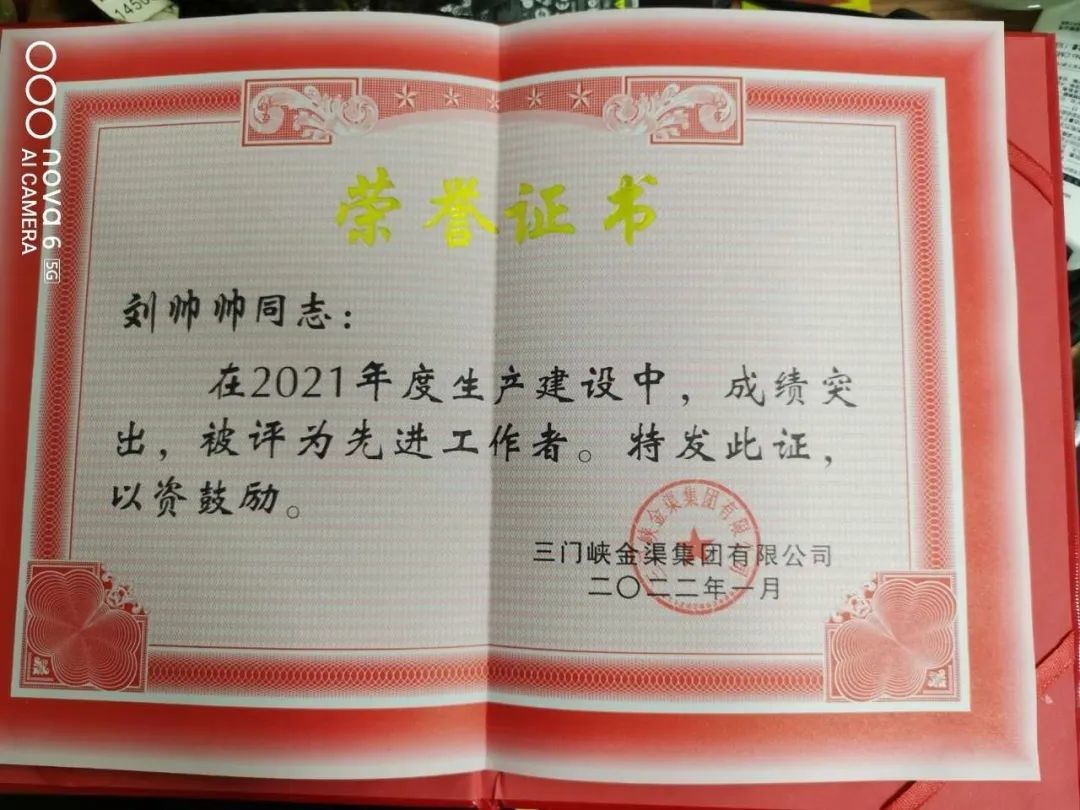 荣誉证书
刘帅帅同志：
在2021年度生产建设中，成绩突
出，被评为先进工作者。特发此证，
以资鼓励。
三门峡金渠集团有限公司
二〇二二年一月
三门峡金渠集团有限公司
nova 6 5G
AI CAMERA